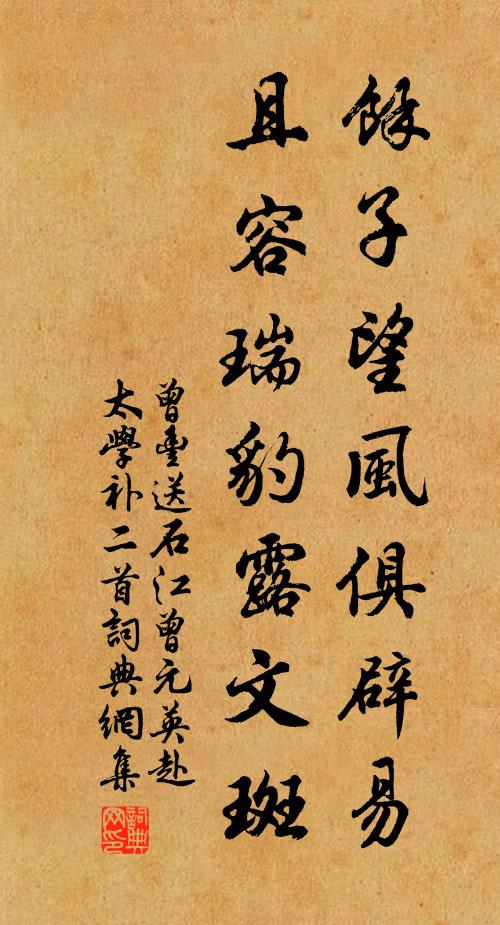 餘子望風俱辟易
且容瑞豹露文斑
曾豐送石江曾元英赴
太學补二首詞典網集
詞典
网印